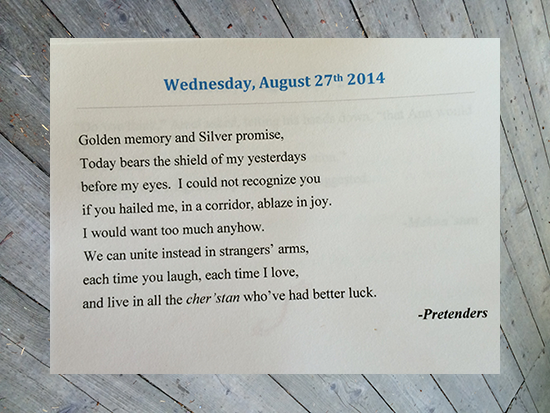 Wednesday, August 27th 2014
Golden memory and Silver promise,
Today bears the shield of my yesterdays
before my eyes.  I could not recognize you
if you hailed me, in a corridor, ablaze in joy.
I would want too much anyhow.
We can unite instead in strangers’ arms,
each time you laugh, each time I love,
and live in all the cher’stan who’ve had better luck.
-Pretenders